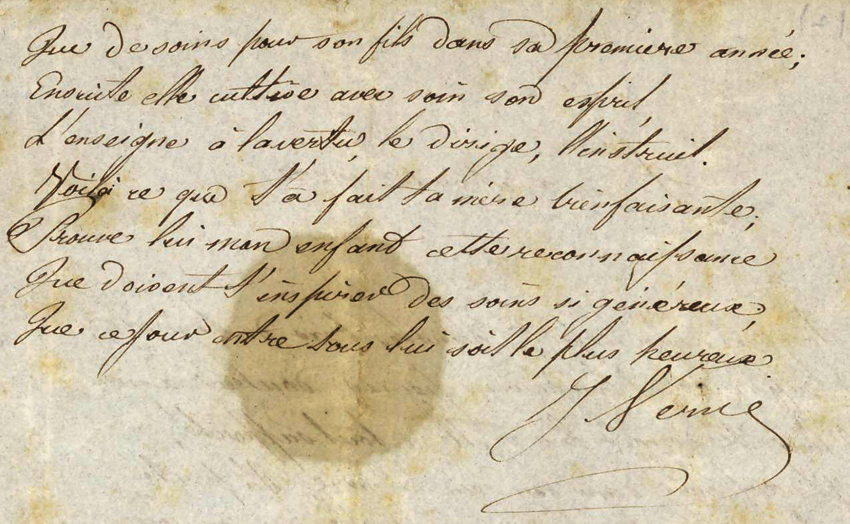 Que de soins pour son fils dans sa première année;
Ensuite elle cultive avec soin son esprit,
L'enseigne à la vertu, le dirige, l'instruit.
Voilà ce que t'a fait ta mère bienfaisante;
Prouve lui mon enfant cette reconnaissance
Que doivent t'inspirer des soins si généreux,
Que ce jour entre tous lui soit le plus heureux
J Verne